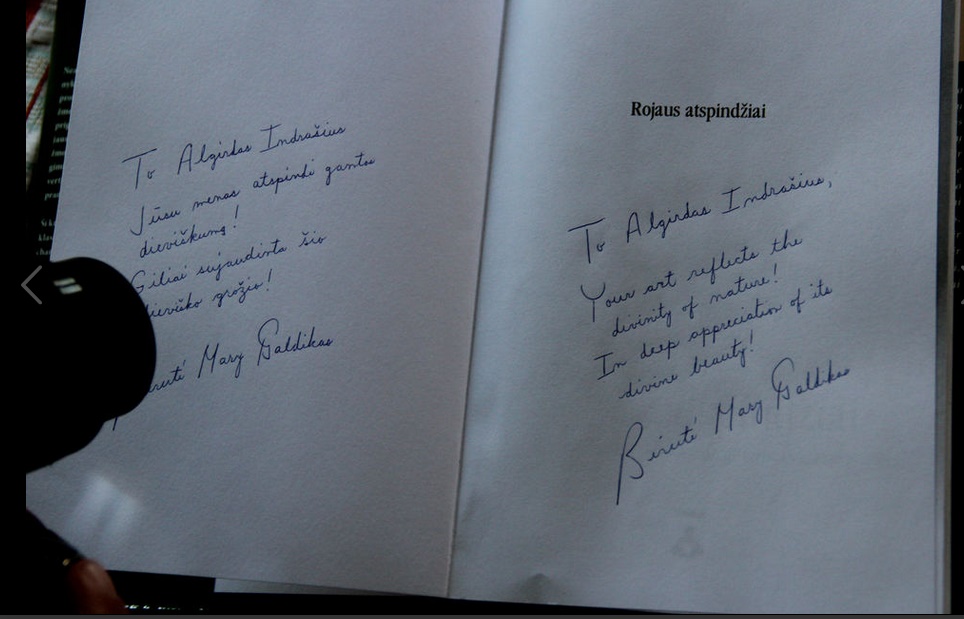 To Algirdas Indrašius
Jūsu menas atspindi gamtos
dieviškumą!
Giliai sujaudinta šio
dieviško grožio!
Mary Galdikas
Rojaus atspindžiai
To Algirdas Indrašius,
Your art reflects the
divinity of nature!
In deep appreciation of its
divine beauty!
Birutė Mary Galdikas